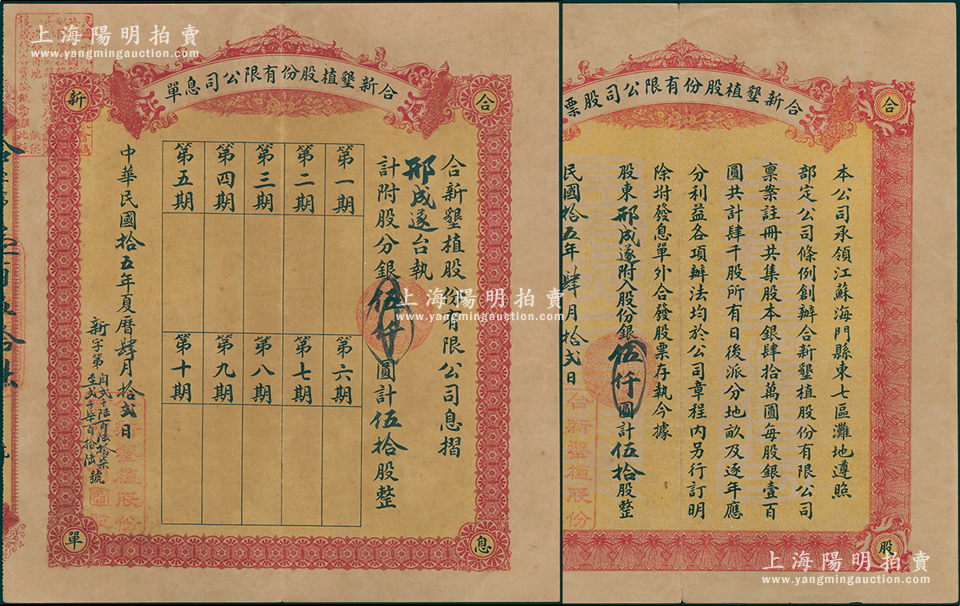 上海陽明拍賣
www.yangmingauction.com
合新墾植股份有限公司息單
合
新
息
單
合新墾植股份有限公司息摺
邢成遂台執
計附股分銀伍仟圓計伍拾股整
第一期
第二期
第三期
第四期
第五期
第六期
第七期
第八期
第九期
第十期
中華民國拾五年夏曆肆月拾弍日
新字第
自弍千陸百陸拾柒
至弍千柒百拾陸號
上海陽明拍賣
www.yangmingauction.com
合新墾植股份有限公司股票
合
股
本公司承領江蘇海門縣東七區灘地遵照
部定公司條例創辦合新墾植股份有限公司
稟案註冊共集股本銀肆拾萬圓每股銀壹百
圓共計肆千股所有日後派分地畝及逐年應
分利益各項辦法均於公司章程內另行訂明
除坿發息單外合發股票存執今據
股東邢成遂附入股份銀伍仟圓計伍拾股整
民國拾五年肆月拾弍日
合新墾植股份
上海陽明拍賣
www.yangmingauction.com